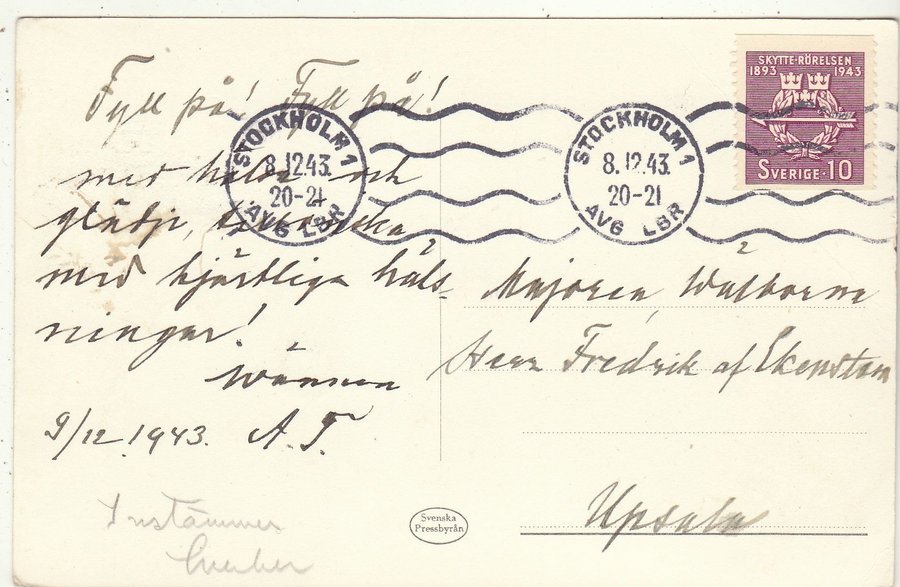 Fyll på! Fyll på!
med hälsa och
glädje, önska
med hjärtliga häls-
ningar!
Wännen
9/12 1943. A. F
Instämmer
STOCKHOLM 1
8.12.43.
20-21
AVG LBR
STOCKHOLM 1
8.12.43.
20-21
AVG LBR
SKYTTE-RÖRELSEN
1893 1943
SVERIGE·10
Majoren Wälborne
Herr Fredrik af Ekenstam
Upsala
Svenska
Pressbyrån